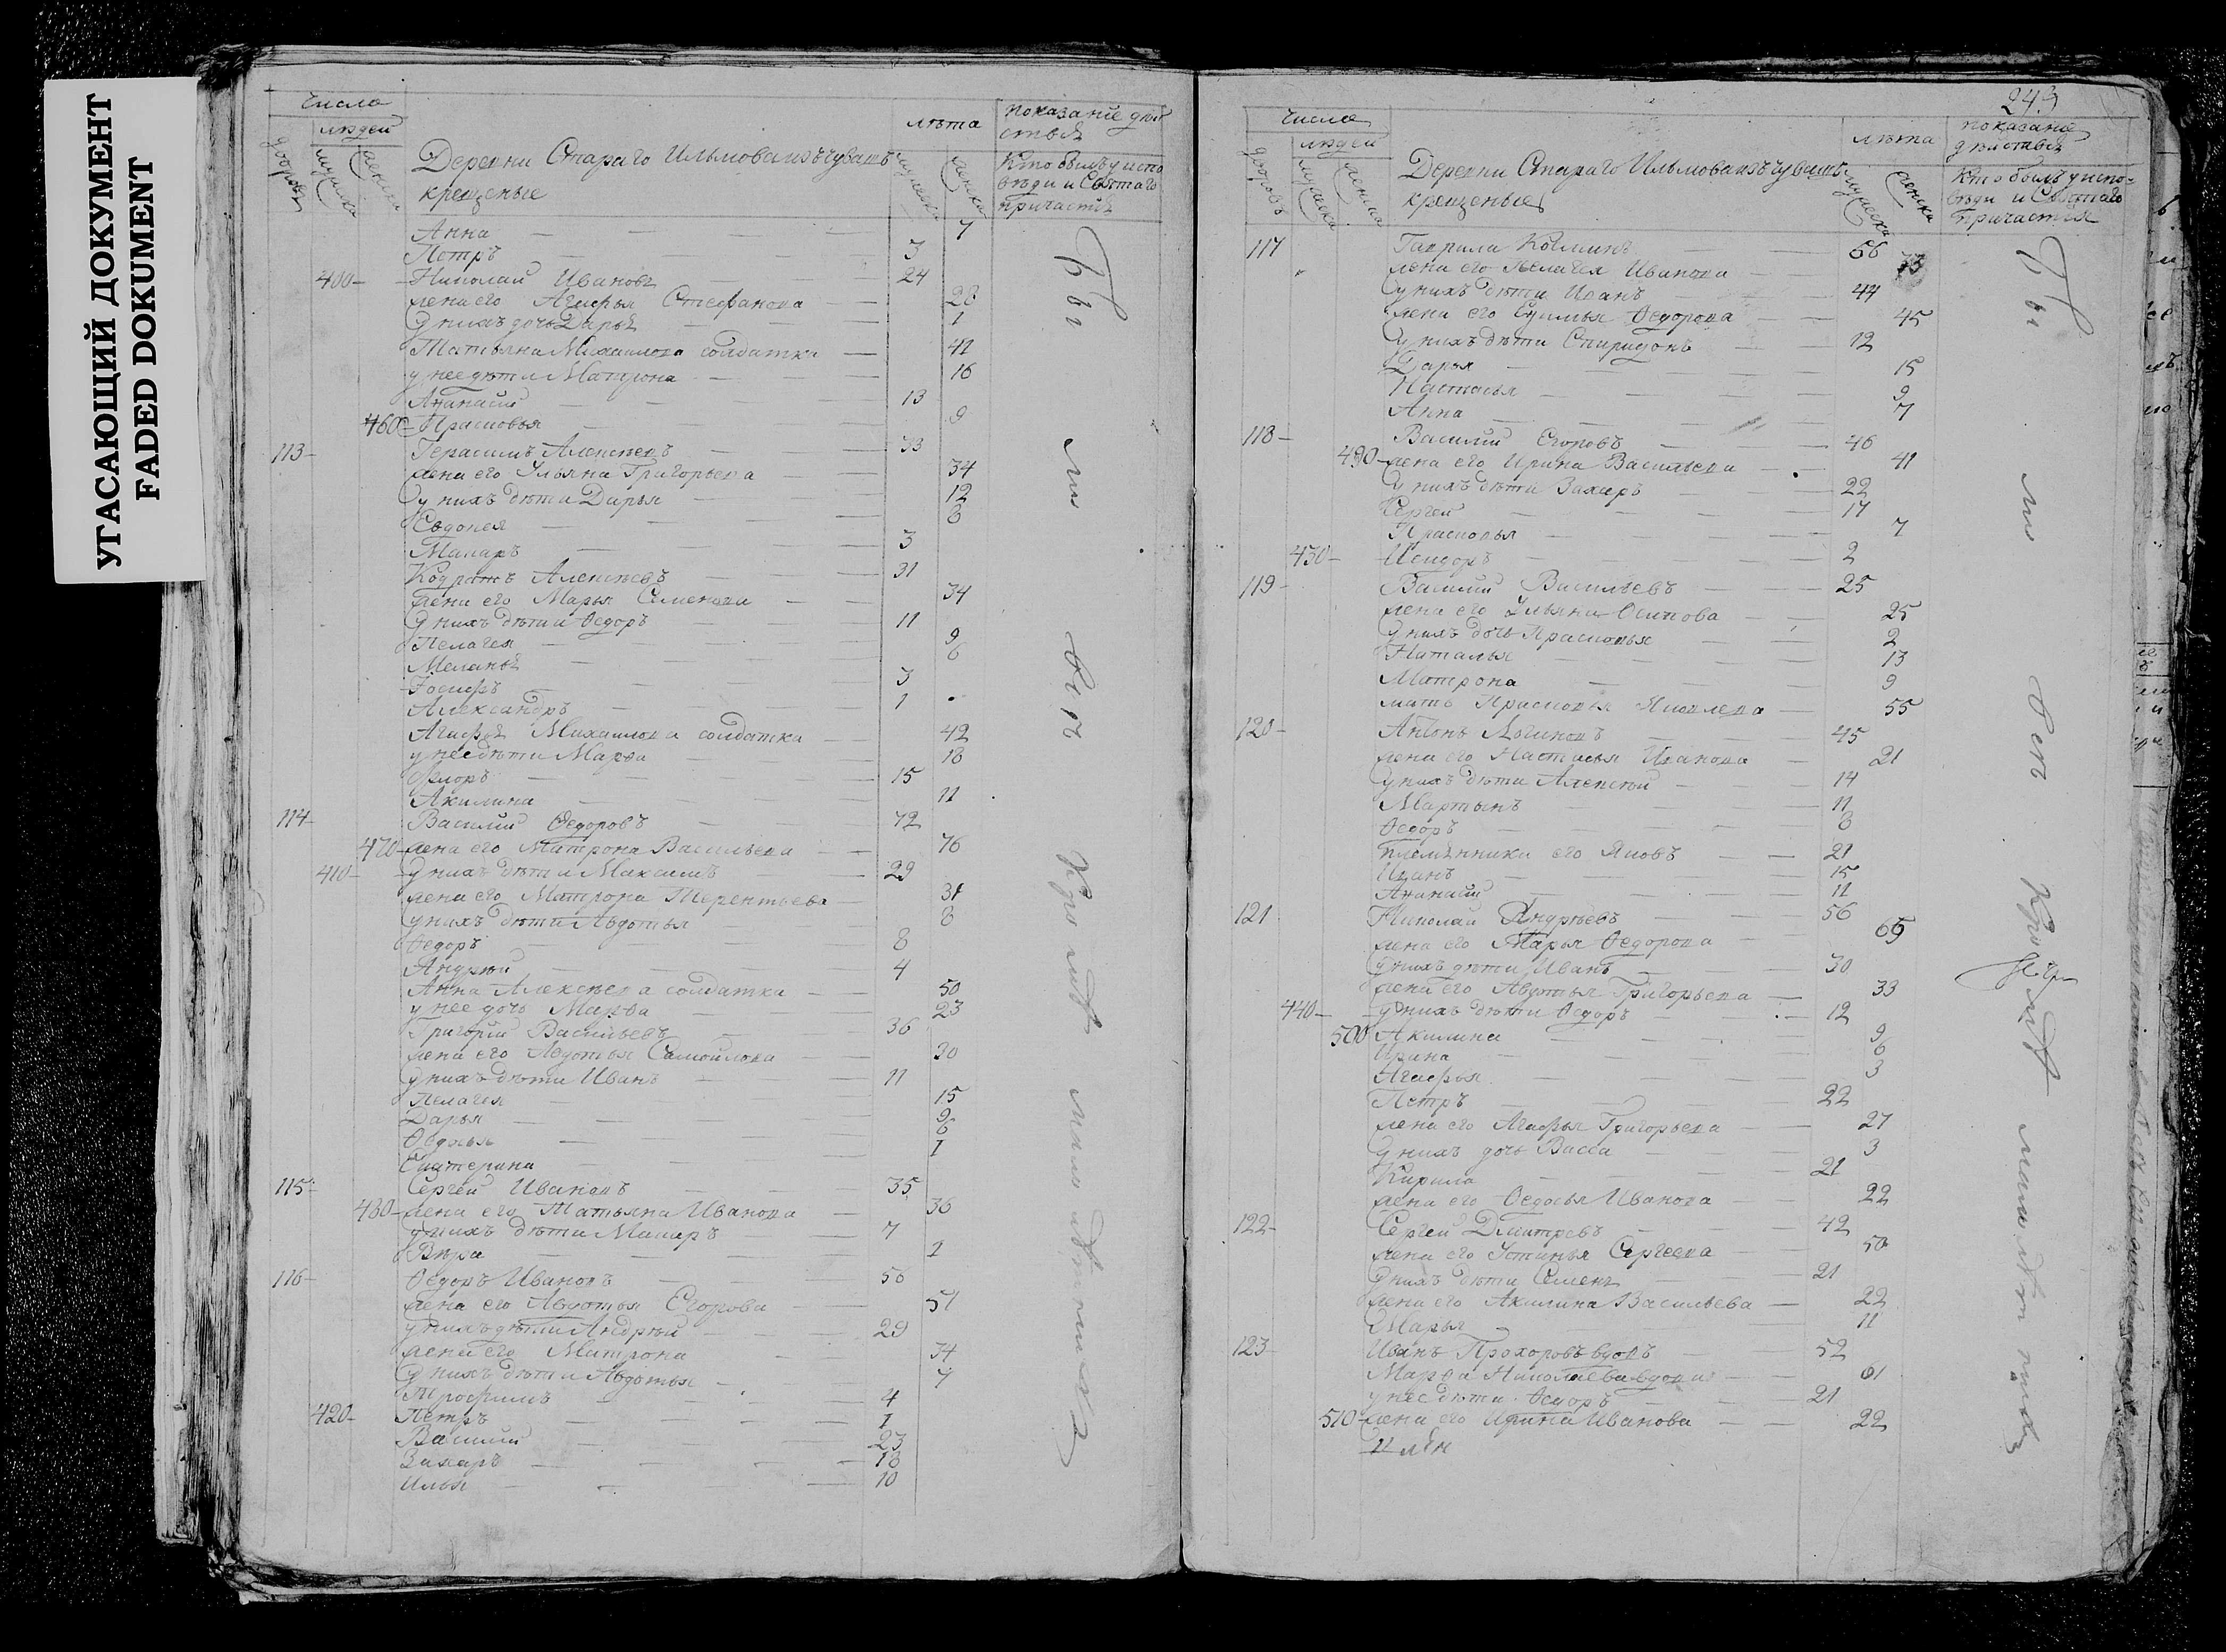 УГАСАЮЩИЙ ДОКУМЕНТ
FADED DOKUMENT
Числа
людей
дворовъ
мужеска
женска
Деревни Стараго Ильмова изъ чувашъ
крещеные
лѣта
мужеска
женска
показанїе дѣй
ствїя
Кто былъ у испо
вѣди и Святаго
причастїя
Анна 7
Петръ 3
400 Николай Ивановъ 24
жена его Агафья Стефанова 28
У нихъ дочь Дарья 1
Татьяна Михаилова солдатка 42
у нее дѣти Матрона 16
Ананїй 13
460 Прасковья 9
113 Герасимъ Алексѣевъ 33
жена его Ульяна Григорьева 34
У нихъ дѣти Дарья 12
8
Макаръ 3
Кодратъ Алексѣевъ 31
жена его Марья Семенова 34
У нихъ дѣти Ѳедоръ 11
Пелагея 9
Меланья 6
Іосифъ 3
Александръ 1
Агафья Михаилова солдатка 42
у нее дѣти Марѳа 18
Флоръ 15
Акилина 11
114 Василїй Ѳедоровъ 72
470 жена его Матрона Васильева 76
410 У нихъ дѣти Максимъ 29
жена его Матрона Терентьева 31
У нихъ дѣти Авдотья 8
Ѳедоръ 8
Андрей 4
Анна Алексѣева солдатка 50
у нее дочь Марѳа 23
Григорїй Васильевъ 36
жена его Авдотья Самойлова 30
У нихъ дѣти Иванъ 11
Пелагея 15
Дарья 9
Ѳедосья 6
Екатерина 1
115 Сергей Ивановъ 35
480 жена его Татьяна Иванова 36
у нихъ дѣти Макаръ 7
Вѣра 2
116 Ѳедоръ Ивановъ 50
жена его Авдотья Егорова 51
у нихъ дѣти Андрей 29
жена его Матрона 34
У нихъ дѣти Авдотья 7
Трофимъ 4
420 Петръ 1
Василїй 23
Захаръ 18
Илья 10
Бы
ли
всѣ
249
Числа
людей
дворовъ
мужеска
женска
Деревни Стараго Ильмова изъ чувашъ
крещеные
лѣта
мужеска
женска
показанїе
дѣйствїя
Кто былъ у испо-
вѣди и Святаго
Причастїя
117 Гаврила Козминъ 56
жена его Пелагея Иванова 73
у нихъ дѣти Иванъ 44
жена его Ѳедорова 45
У нихъ дѣти Спиридонъ 12
Дарья 15
Настасья 9
Анна 7
118 Василїй Егоровъ 46
490 жена его Ирина Васильева 41
У нихъ дѣти Захаръ 22
Сергей 17
Прасковья 7
430 Исидоръ 2
119 Василїй Васильевъ 25
жена его Ульяна Осипова 25
У нихъ дочь Прасковья 2
Наталья 13
Матрона 9
мать Прасковья Яковлева 55
120 Антонъ Логиновъ 45
жена его Настасья Иванова 21
У нихъ дѣти Алексѣй 14
Мартынъ 11
Ѳедоръ 8
племянники его Яковъ 21
Иванъ 15
Ананїй 11
121 Николай Андреевъ 56
жена его Марья Ѳедорова 65
У нихъ дѣти Иванъ 30
жена его Авдотья Григорьева 33
440 у нихъ дѣти Ѳедоръ 12
500 Акилина 9
Ирина 6
Агафья 3
Петръ 22
жена его Агафья Григорьева 27
У нихъ дочь Васса 3
Кирила 21
жена его Ѳедосья Иванова 22
122 Сергей Дмитревъ 42
жена его Устинья Сергеева 50
У нихъ дѣти Семенъ 21
жена его Акилина Васильева 22
Марья 11
123 Иванъ Прохоровъ вдовъ 52
Марѳа Николаева вдова 61
у нее дѣти Ѳедоръ 21
510 жена его Ирина Иванова 22
Бы
ли
всѣ